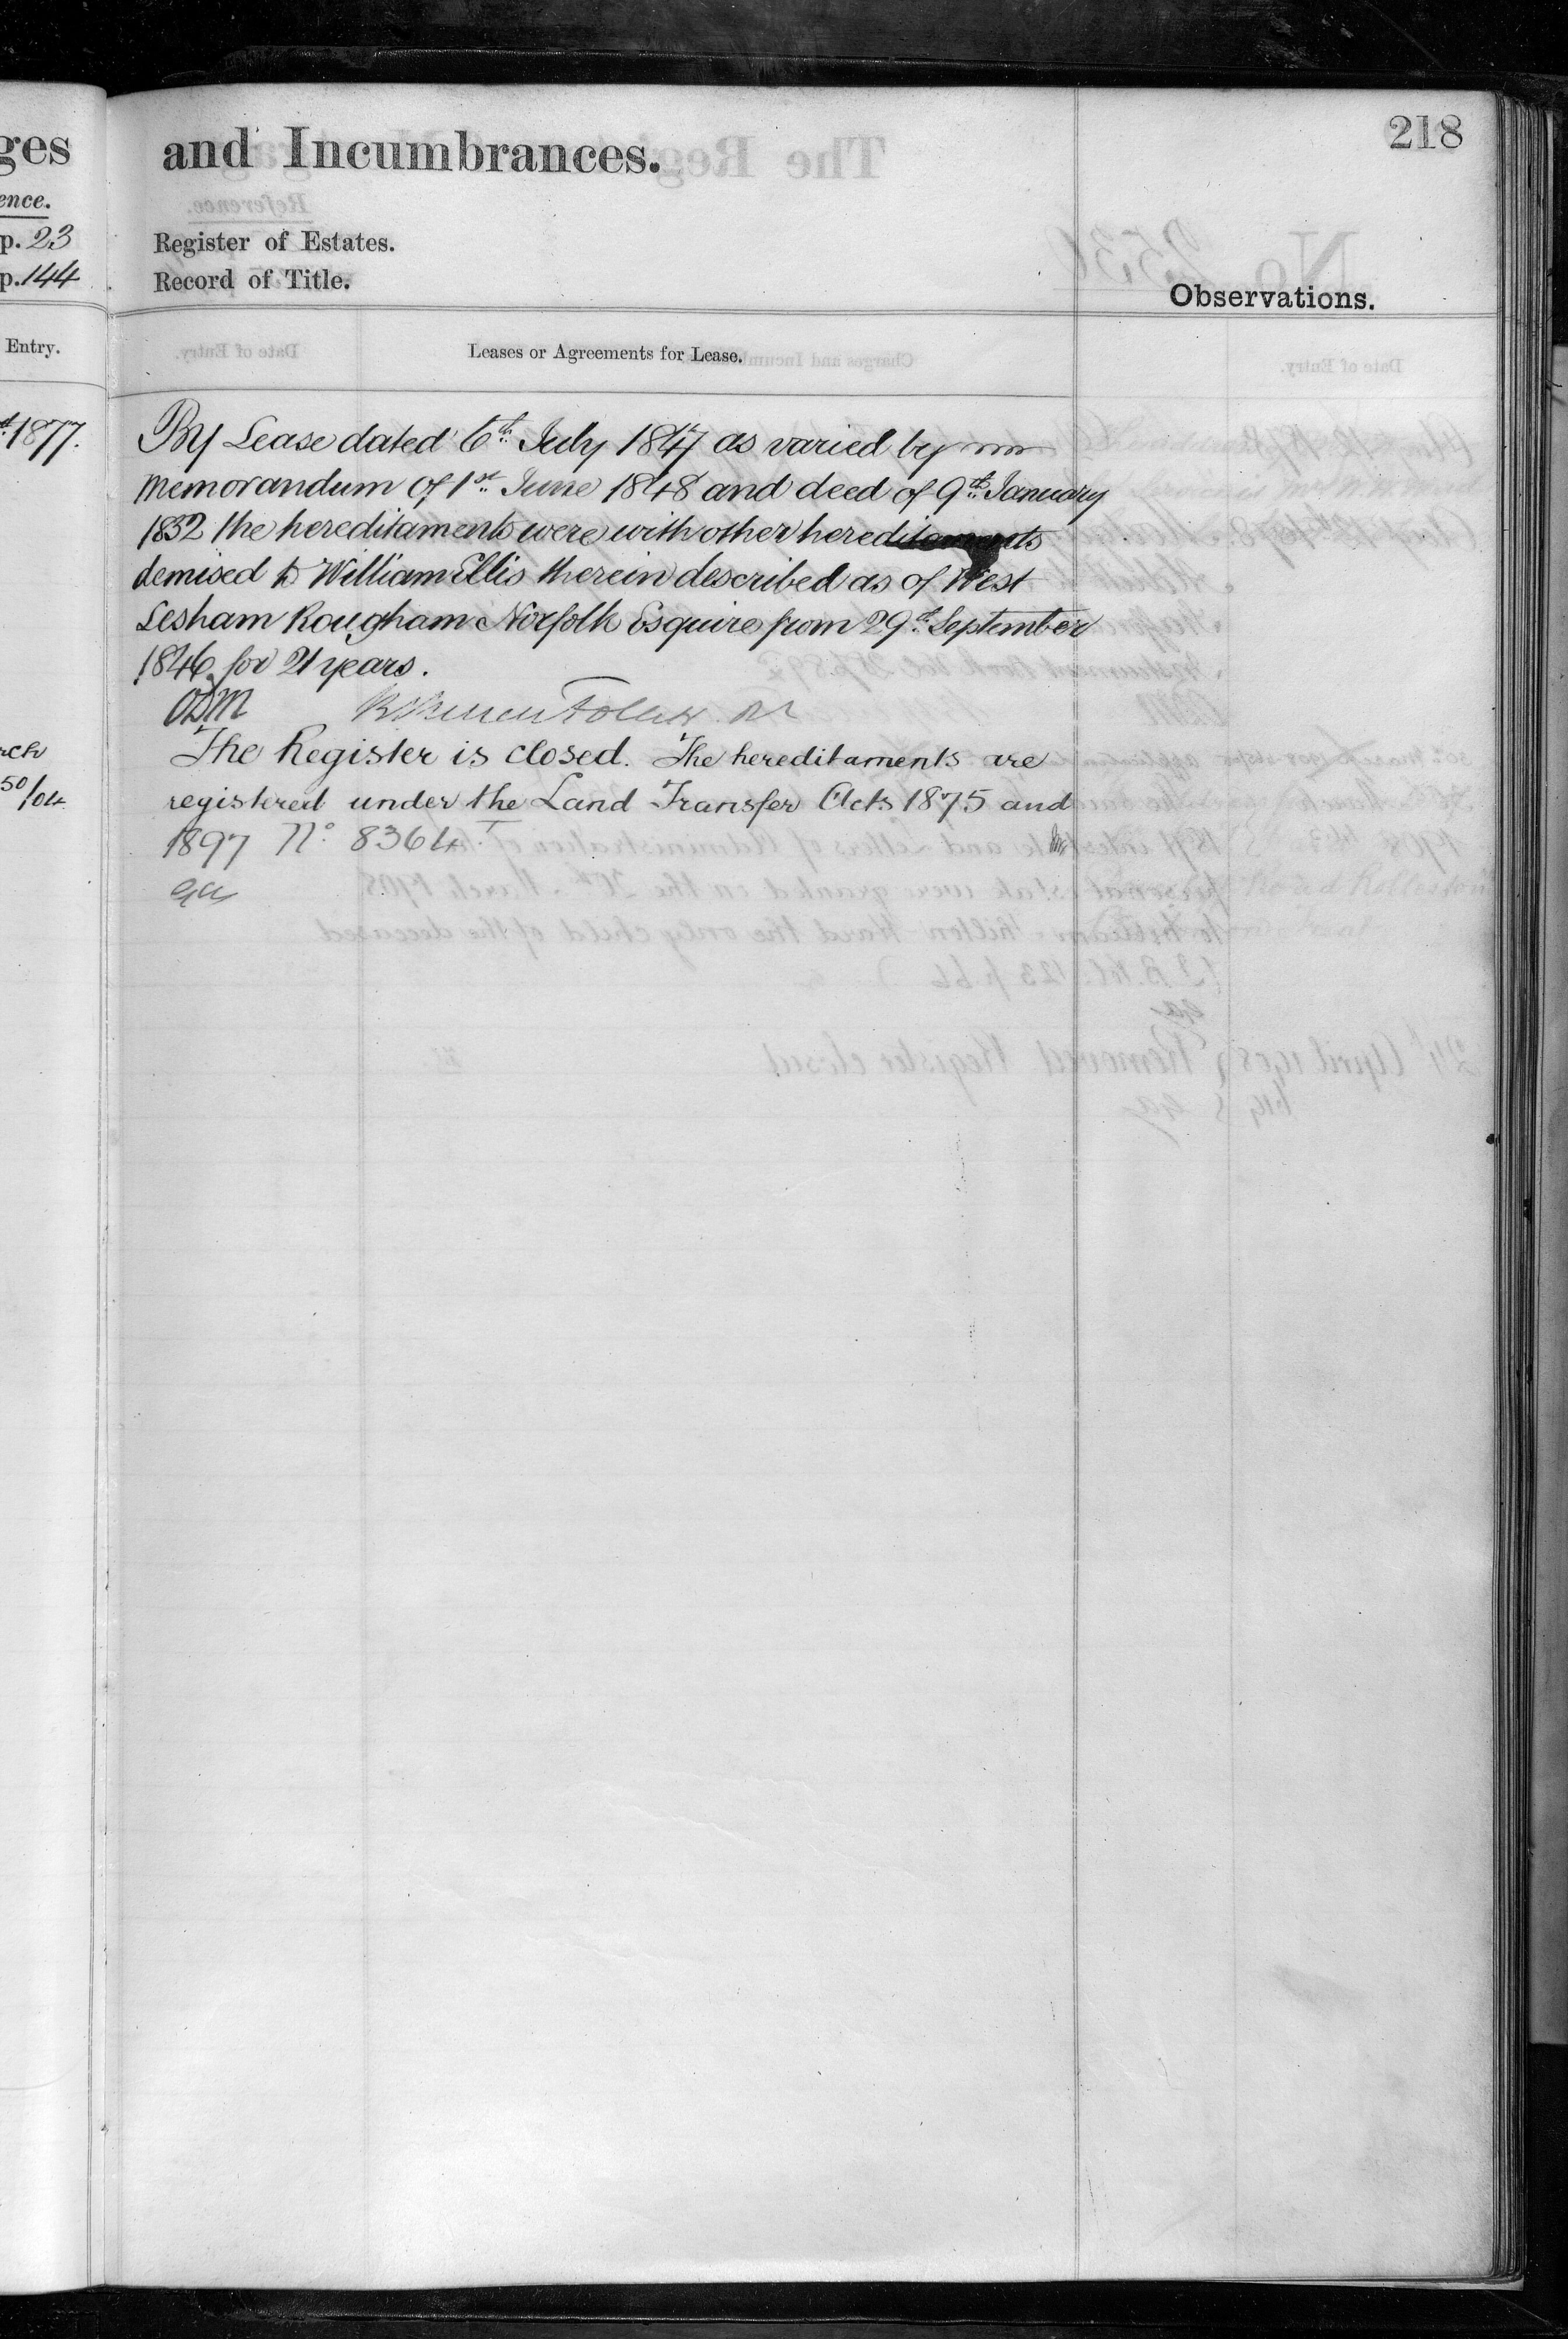 218
ges
and Incumbrances.
ence.
p. 23
Register of Estates.
p. 144
Record of Title.
Observations.
Entry.
Leases or Agreements for Lease.
1877.
By Lease dated 6th July 1847 as varied by
memorandum of 1st June 1848 and deed of 9th January
1832 the hereditaments were with other hereditaments
demised to William Ellis therein described as of West
Lesham Rougham Norfolk Esquire from 29th September
1846 for 21 years.
The Register is closed. The hereditaments are
rch
registered under the Land Transfer Acts 1875 and
50/04
1897 No. 8364.